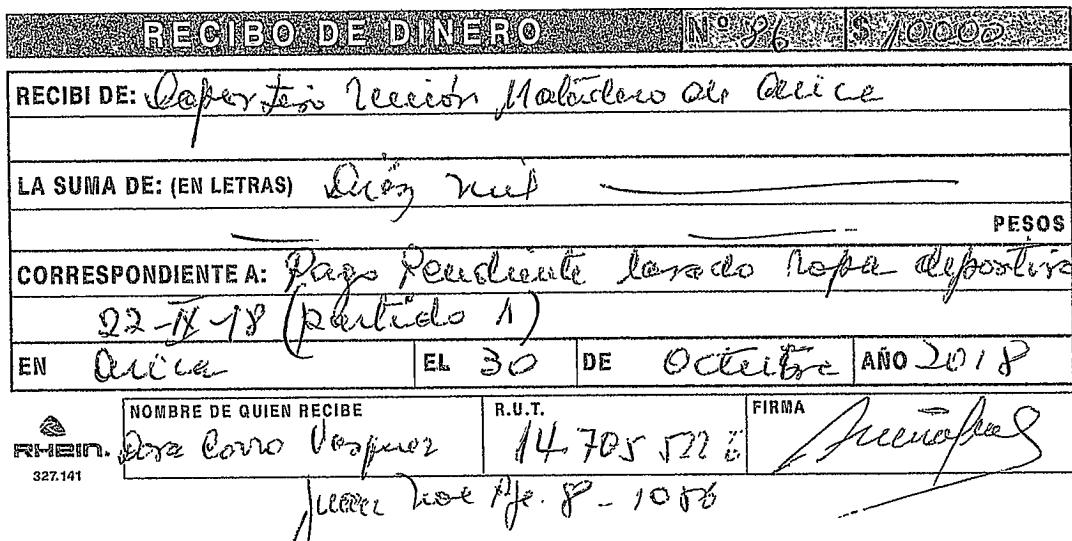 RECIBO DE DINERO Nº 86 $ 10000
RECIBI DE: Deportivo Unión Matadero de Arica
LA SUMA DE: (EN LETRAS) Diez mil
PESOS
CORRESPONDIENTE A: Pago Pendiente lavado ropa deportiva
22-IX-18 (partido 1)
EN Arica EL 30 DE Octubre AÑO 2018
NOMBRE DE QUIEN RECIBE R.U.T. FIRMA
RHEIN. Corro Vasquez 14.705 522
327.141
Juan Noe Pje. 8 - 1086